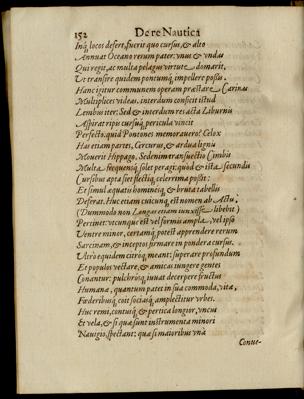 152 De re Nautica
Inq; locos defere, fuerit quo cursus, & alto
Annuat Oceano rerum pater: vnus & vndas
Qui regit, ac multa pelagus virtute domarit,
Ut transire quidem pontumq; impellere possis.
Hanc igitur communem operam præstare Carinas
Multiplices videas. interdum conficit istud
Lembus iter: Sed & interdum res acta Liburnis
Aspirat ripis cursuq; pericula vincit
Perfecto. quid Pontones memorauero? Celox
Has etiam partes, Cercurus, & ardua lignis
Mouerit Hippago. Sed enim transuectio Cimbis
Multa frequensq; solet peragi: quod & ista secundis
Cursibus apta siet flectiq; celerrima possit:
Et simul æquatis homineiq; & bruta tabellis
Deferat. Huc etiam cuicunq, est nomen ab Actu,
(Dummodo non Longas etiam iunxisse libebit)
Pertinet: vtcunque est vel formis ampla, vel ipso
Ventre minor, certamq; potest apprendere rerum
Sarcinam, & inceptos firmare in pondera cursus.
Ultro equidem citroq, meant: superare profundum
Et populos vectare, & amicas iungere gentes
Conantur: pulchriorq; iuuat decerpere fructus
Humana, quantum patet in sua commoda, vita,
Fœderibusq; coit sociasq, amplectitur vrbes.
Huc remi, contuiq, & pertica longior, vncus
Et vela, & si qua sunt instrumenta minori
Nauigio, spectant: qua si maioribus vna
Conue-